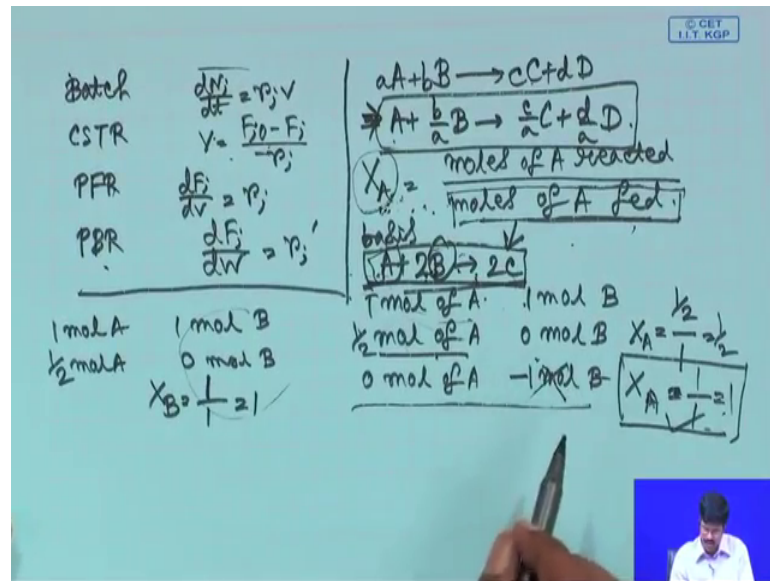 © CET
I.I.T. KGP
Batch dNj/dt = rj V
CSTR V = Fj0 - Fj / -rj
PFR dFj/dV = rj
PBR dFj/dW = rj'
1 mol A 1 mol B
1/2 mol A 0 mol B
XB = 1/1 = 1
aA + bB → cC + dD
⇒ A + b/a B → c/a C + d/a D.
XA = moles of A reacted / moles of A fed.
basis
A + 2B → 2C
1 mol of A. 1 mol B
1/2 mol of A 0 mol B XA = 1/2 / 1 = 1/2
0 mol of A -1 mol B XA = 1/1 = 1